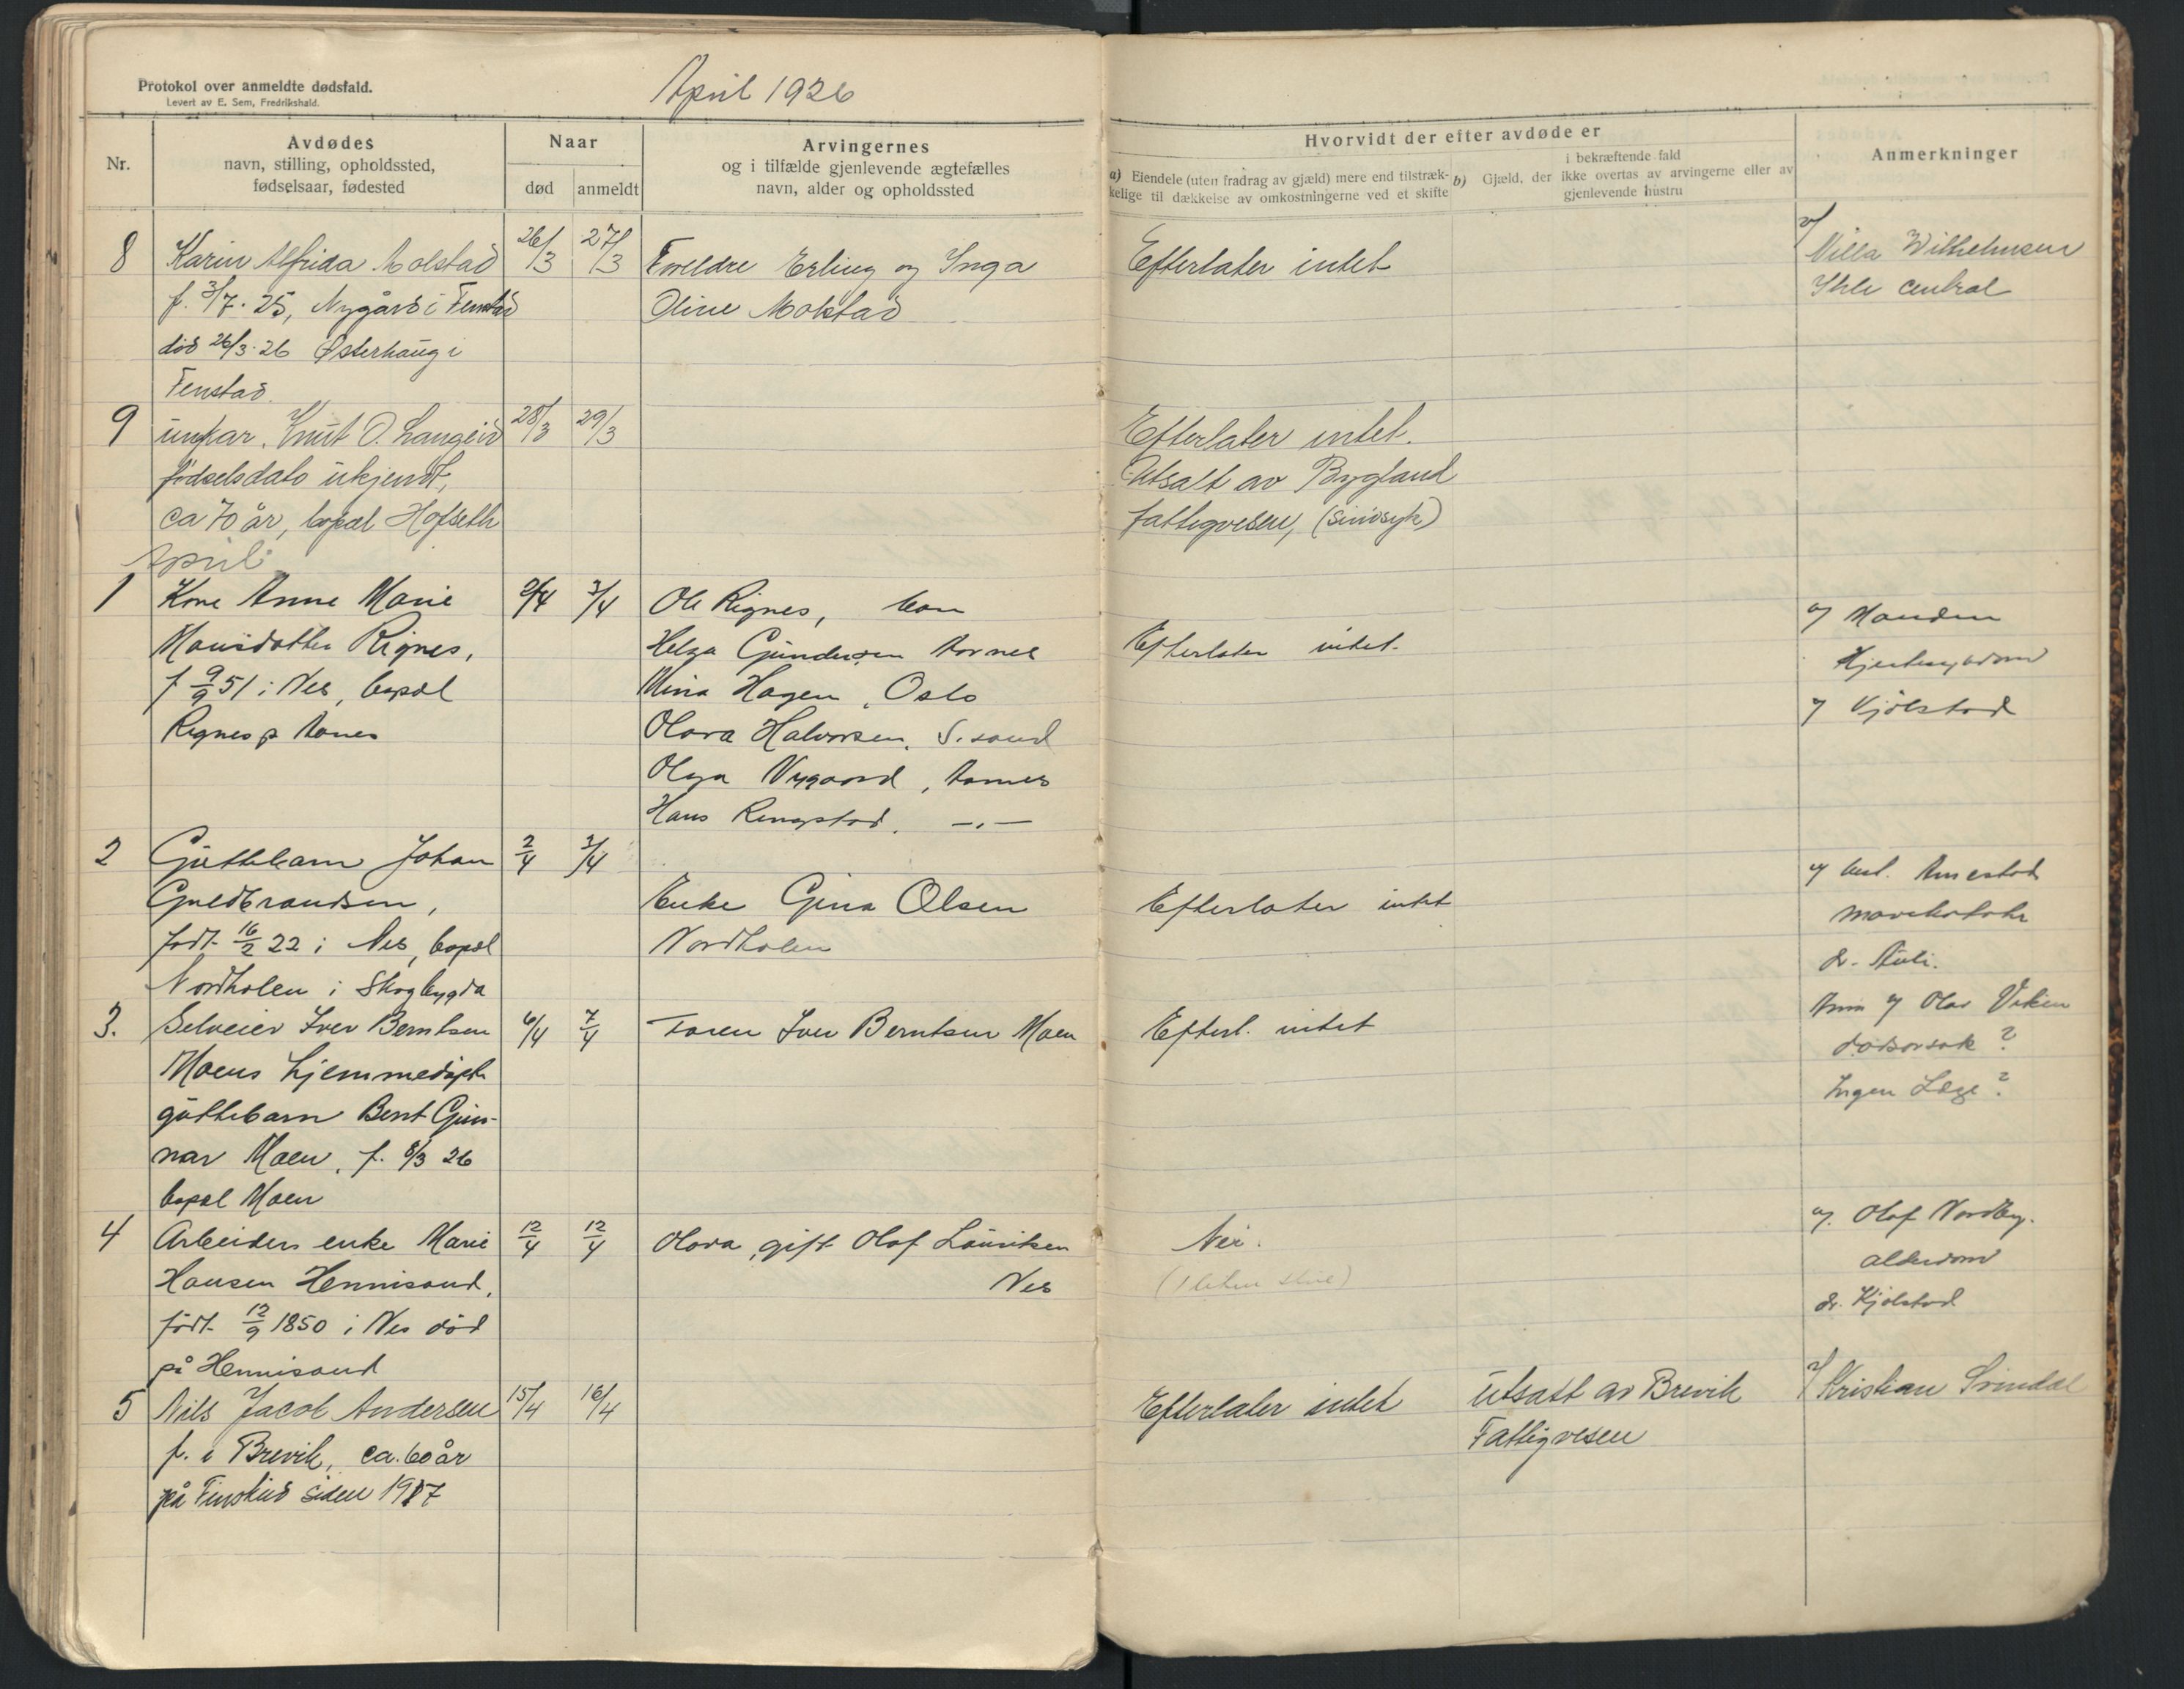 Protokol over anmeldte dødsfald.
Levert av E. Sem, Fredrikshald.
April 1926
Nr.
Avdødes
navn, stilling, opholdssted,
fødselsaar, fødested
Naar
død
anmeldt
Arvingernes
og i tilfælde gjenlevende ægtefælles
navn, alder og opholdssted
Hvorvidt der efter avdøde er
a) Eiendele (uten fradrag av gjæld) mere end tilstræk-
kelige til dækkelse av omkostningerne ved et skifte
i bekræftende fald
b) Gjæld, der ikke overtas av arvingerne eller av
gjenlevende hustru
Anmerkninger
8
Karin Alfrida Molstad
f. 3/7. 25, Nygård i Fenstad
død 26/3. 26 Østerhaug i
Fenstad.
26/3
27/3
Foreldre Erling og Inga
Oline Molstad
Efterlater intet
v/ Villa Wilhelmsen
Ihle central
9
ungkar. Knut O. Langeid
fødselsdato ukjendt,
ca 70 år, bopæl Hofseth
28/3
29/3
Efterlater intet.
Utsatt av Bygland
fattigvesen, (sindsyk)
April
1
Kone Anne Marie
Hansdatter Rignes,
f 9/9 51 i Nes, bopæl
Rignes p Aarnes
2/4
3/4
Ole Rignes,
Helga Gundersen Aarnes
Mina Hagen, Oslo
Olava Halvorsen, S. sand
Olga Nygaard, Aarnes
Hans Ringstad, -"-
Efterlater intet.
v/ Manden
v/ Kjølstad
2
Guttebarn Johan
Guldbrandsen,
født 16/2 22 i Nes, bopæl
Nordholen i Skogbygda
2/4
3/4
Enke Gina Olsen
Nordholen
Efterlater intet
dr. Auli.
3.
Selveier Iver Berntsen
Moens hjemmedøpte
guttebarn Bernt Gun-
nar Moen, f. 8/3 26
bopæl Moen
6/4
7/4
Faren Iver Berntsen Moen
Efterl. intet
Anm v/ Olav Viken
dødsorsak?
Ingen Læge?
4
Arbeiders enke Marie
Hansen Hennisand,
født 12/9 1850 i Nes død
på Hennisand
12/4
12/4
Olava, gift Olaf Lauritsen
Nes
Nei.
(1 liten stue)
v/. Olaf Nordby.
alderdom
dr. Kjølstad
5
Nils Jacob Andersen
f. i Brevik, ca. 60 år
på Finstad siden 1917
15/4
16/4
Efterlater intet
Utsatt av Brevik
Fattigvesen
v/ Kristian Svindal